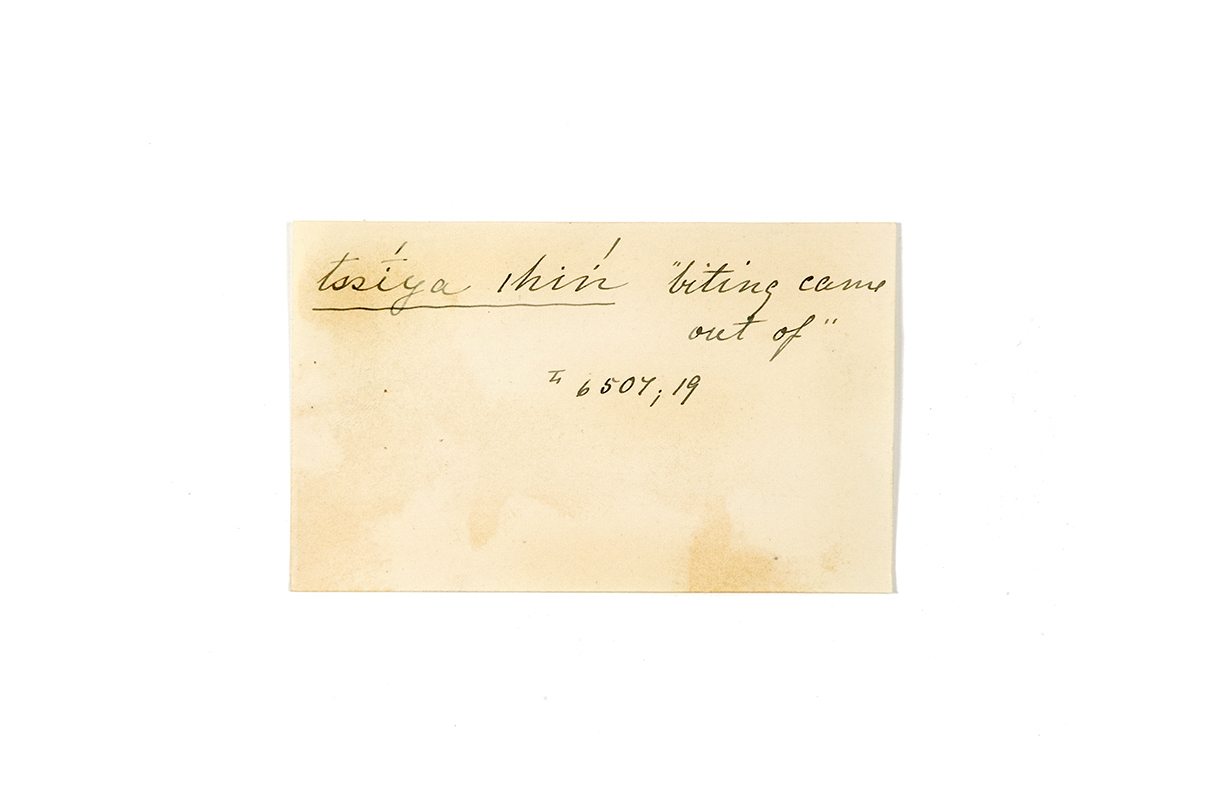 tssíya ıhiń "biting came
out of"
I 6507; 19